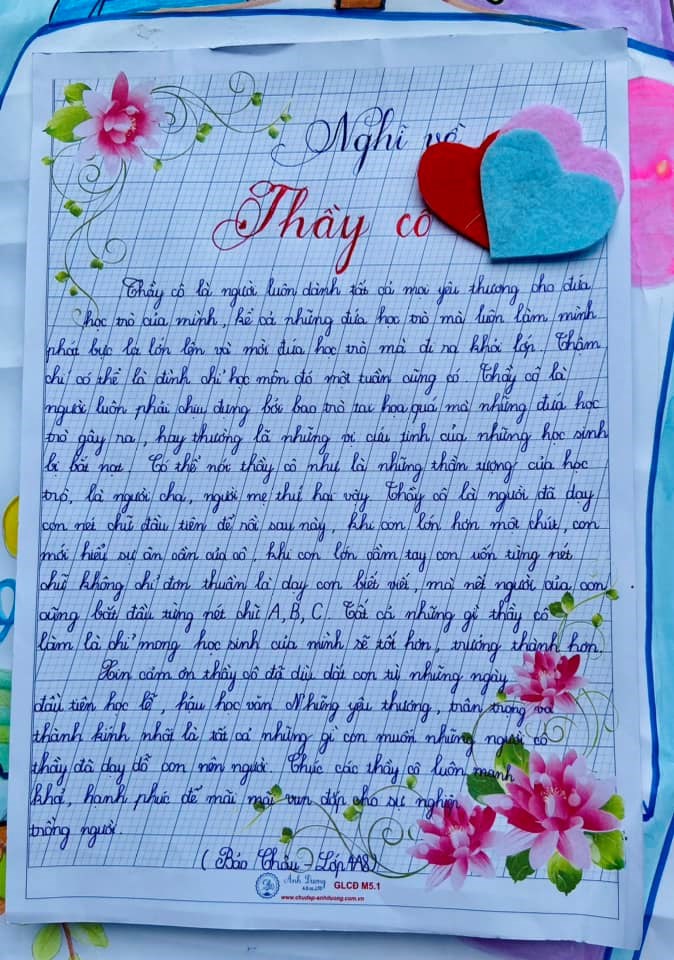 Nghĩ về
Thầy cô
Thầy cô là người luôn dành tất cả mọi yêu thương cho đứa
học trò của mình, kể cả những đứa học trò mà luôn làm mình
phát bực la lớn lên và mời đứa học trò mà đi ra khỏi lớp. Thậm
chí có thể là đình chỉ học môn đó một tuần cũng có. Thầy cô là
người luôn phải chịu đựng bởi bao trò tai họa quá mà những đứa học
trò gây ra, hay thường là những vị cứu tinh của những học sinh
bị bắt nạt. Có thể nói thầy cô như là những thần tượng của học
trò, là người cha, người mẹ thứ hai vậy. Thầy cô là người đã dạy
con nét chữ đầu tiên để rồi sau này, khi con lớn hơn một chút, con
mới hiểu sự ân cần của cô, khi con lớn cầm tay con uốn từng nét
chữ không chỉ đơn thuần là dạy con biết viết, mà nết người của con
cũng bắt đầu từng nét chữ A, B, C. Tất cả những gì thầy cô
làm là chỉ mong học sinh của mình sẽ tốt hơn, trưởng thành hơn.
Xin cảm ơn thầy cô đã dìu dắt con từ những ngày
đầu tiên học lễ, hậu học văn. Những yêu thương, trân trọng và
thành kính nhất là tất cả những gì con muốn những người cô
thầy đã dạy dỗ con nên người. Chúc các thầy cô luôn mạnh
khả, hạnh phúc để mãi mãi vun đắp cho sự nghiệp
trồng người.
(Bảo Châu - Lớp 4A8)
Ánh Dương
GLCĐ M5.1
www.chudep-anhduong.com.vn